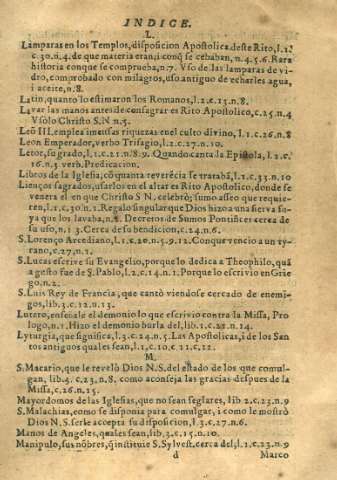 INDICE.
L.
Lamparas en los Templos, disposicion Apostolica deste Rito, l.1.
c.30.n.4. de que materia eran, i conq̃ se cebaban, n.4.5.6. Rara
historia con que se comprueba, n.7. Vso de las lamparas de vi-
dro, comprobado con milagros, uso antiguo de echarles agua,
i aceite, n.8.
Latin, quanto lo estimaron los Romanos, l.2.c.13.n.8.
Lavar las manos antes de consagrar es Rito Apostolico, c.25.n.4
Vsólo Christo S.N n.5.
Leõ III. emplea imensas riquezas en el culto divino, l.1.c.26.n.8
Leon Emperador, verbo Trisagio, l.2.c.27.n.10.
Letor, su grado, l.1.c.21.n.8.9. Quando canta la Epistola, l.2.c.
16.n.3. verb. Predicacion.
Libros de la Iglesia, cõ quanta reverẽcia se tratabã, l.1.c.33.n.10
Lienços sagrados, usarlos en el altar es Rito Apostolico, donde se
venera el en que Christo S N. celebrò; sumo aseo que requie-
ren, l.1.c.30.n.1. Regalo singular que Dios hizo a una sierva su-
ya que los lavaba, n.2. Decretos de Sumos Pontifices cerca de
su uso, n.13. Cerca de su bendicion, c.24.n.6.
S. Lorenço Arcediano, l.1.c.20.n.5.9.12. Con que vencio a un ty-
rano, c.27.n.1.
S. Lucas escrive su Evangelio, porque lo dedica a Theophilo, quã
a gesto fue de S. Pablo, l.2.c.14.n.1. Porque lo escrivio en Grie
go. n.2.
S. Luis Rey de Francia, que cantò viendose cercado de enemi-
gos, lib.3.c.12.n.13.
Lutero, enseñale el demonio lo que escrivio contra la Missa, Pro
logo, n.1. Hizo el demonio burla del, lib.1.c.28.n.14.
Lyturgia, que significa, l.3.c.24.n.5. Las Apostolicas, i de los San
tos antiguos quales sean, l.1.c.10.c 11.c,12.
M.
S. Macario, que le revelò Dios N.S. del estado de los que comul-
gan, lib.4.c.23.n.8. como aconseja las gracias despues de la
Missa, c.26.n.15.
Mayordomos de las Iglesias, que no sean seglares, lib 2.c.23.n.9
S. Malachias, como se disponia para comulgar, i como le mostrò
Dios N.S. serle accepta su disposicion, l.3.c.27.n.6.
Manos de Angeles, quales sean, lib.3.c.15.n.10.
Manipulo, sus nõbres, q̃ instituie S. Sylvest. cerca del, l.1.c.23.n.9
d Marco